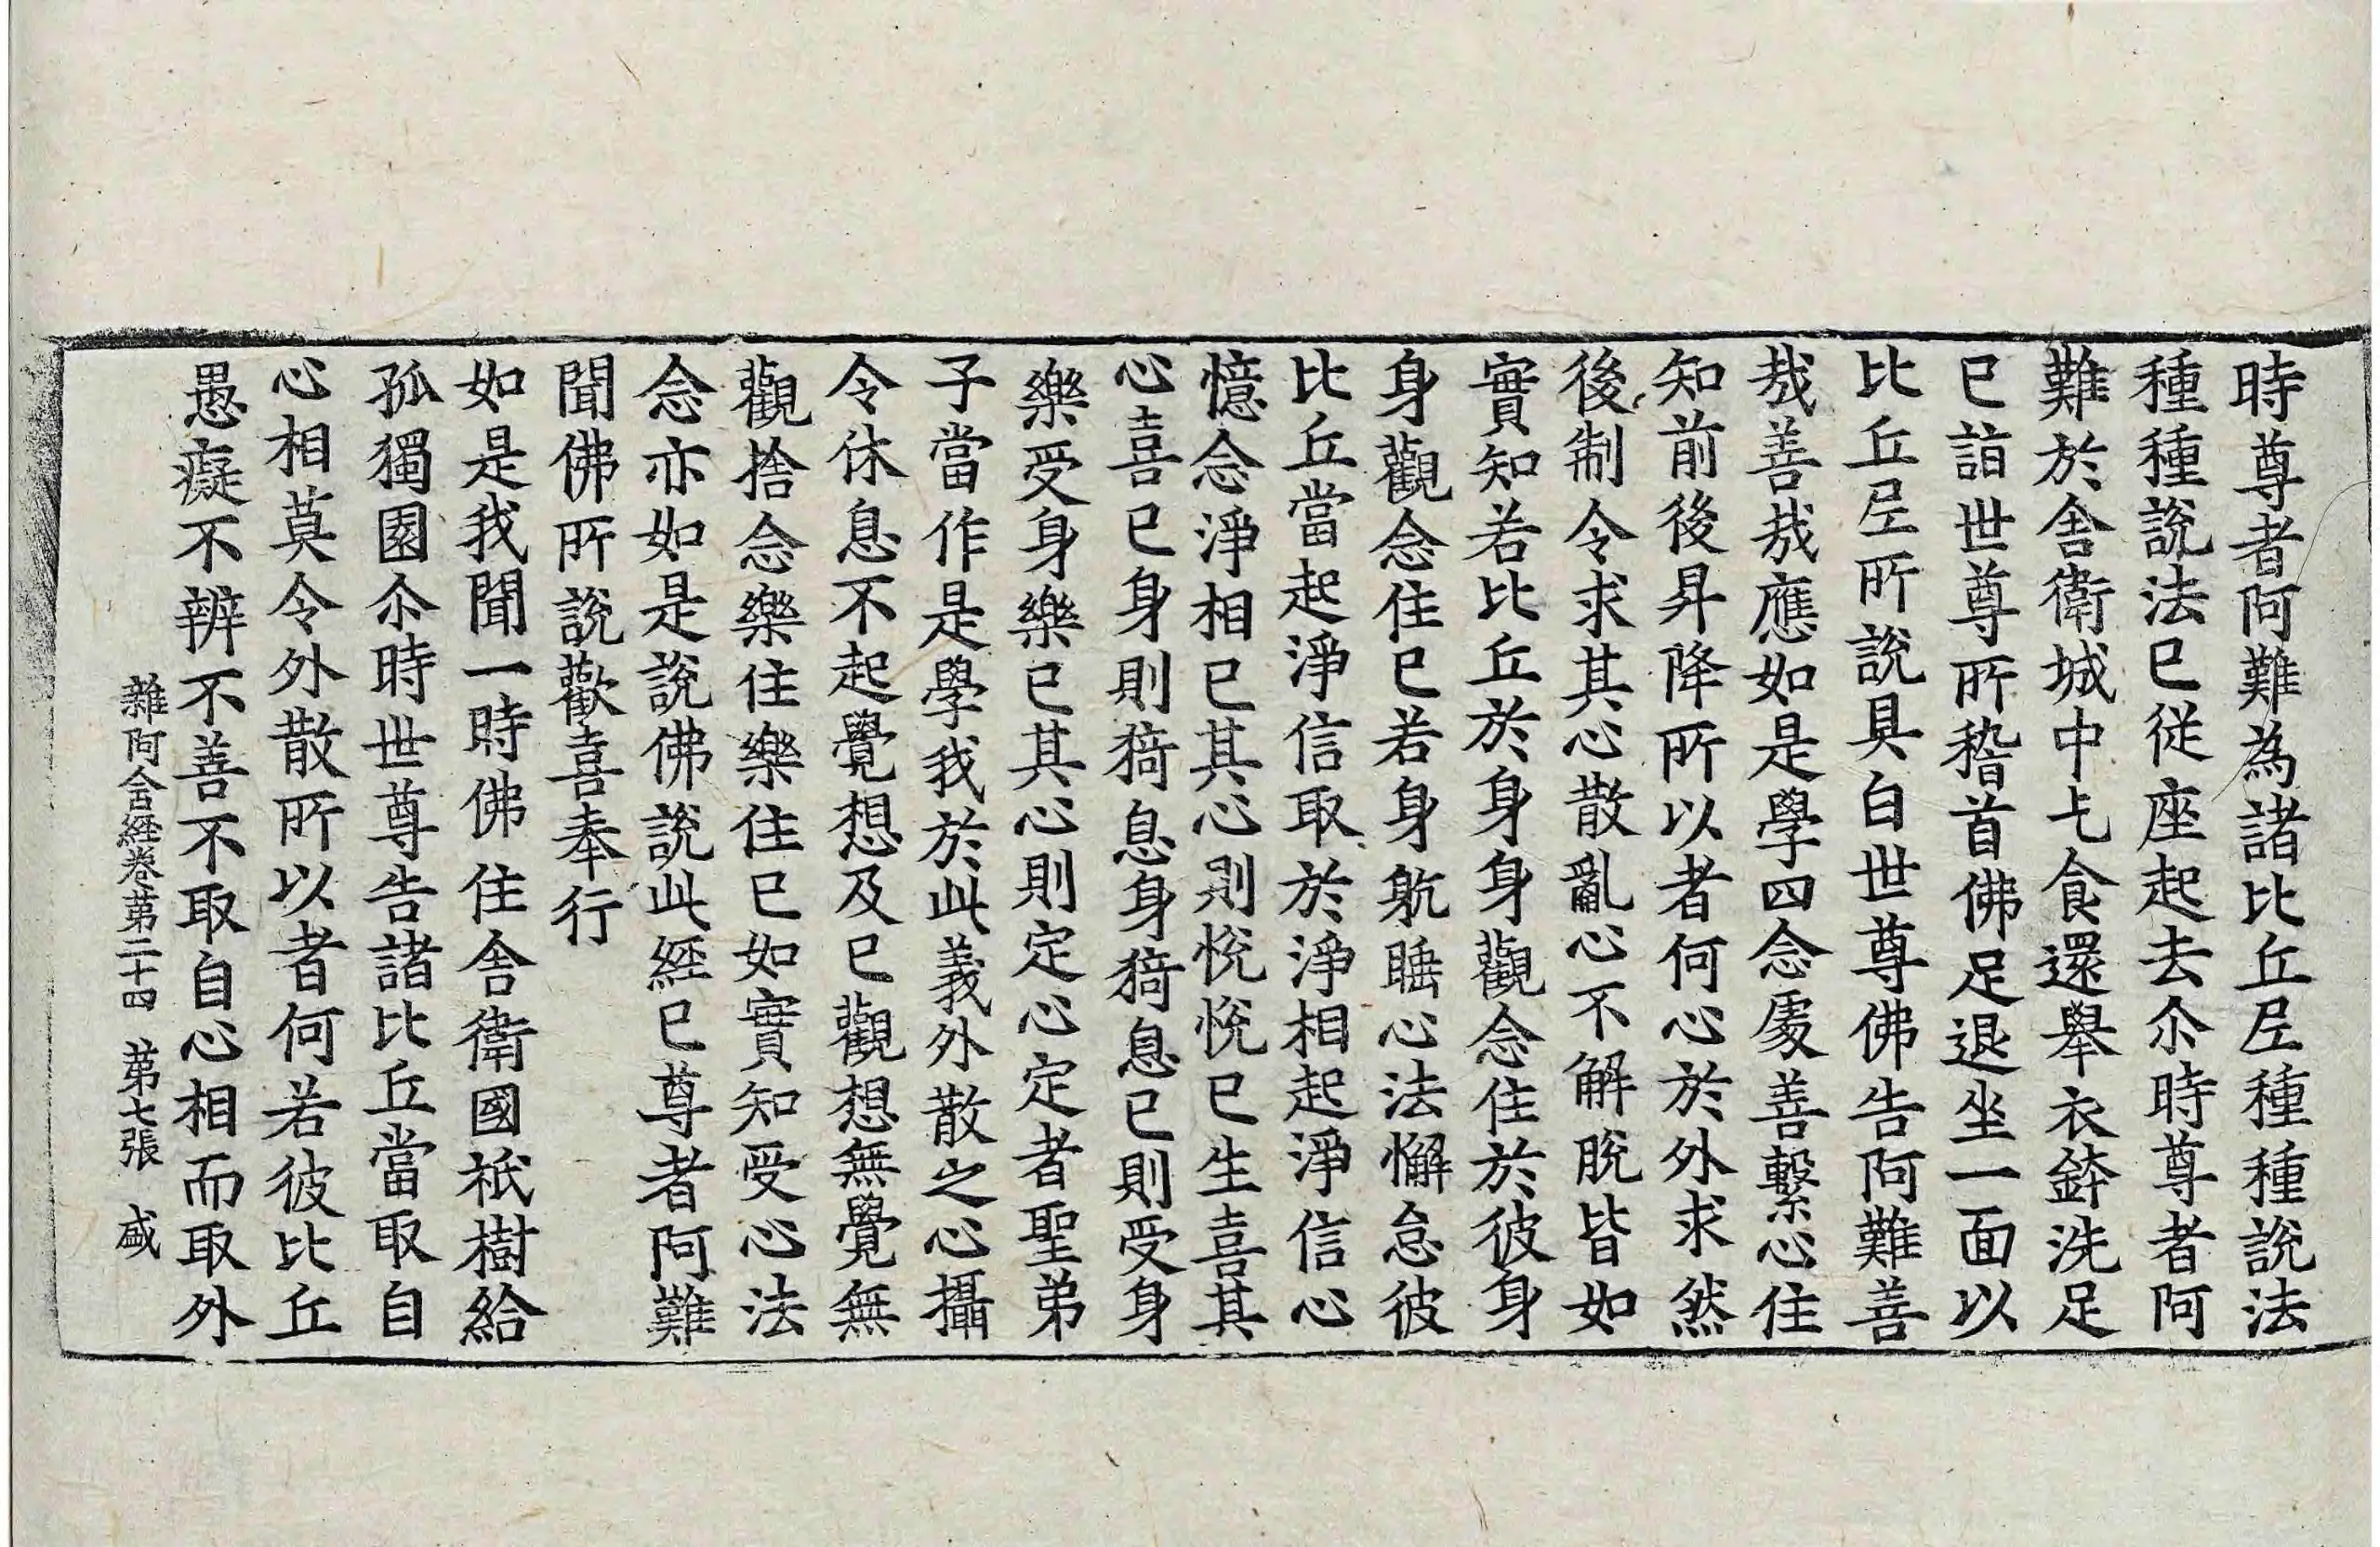 時尊者阿難為諸比丘尼種種說法
種種說法已從座起去尒時尊者阿
難於舍衛城中乞食還舉衣鉢洗足
已詣世尊所稽首佛足退坐一面以
比丘尼所說具白世尊佛告阿難善
哉善哉應如是學四念處善繫心住
知前後昇降所以者何心於外求然
後制令求其心散亂心不解脫皆如
實知若比丘於身身觀念住於彼身
身觀念住已若身躭睡心法懈怠彼
比丘當起淨信取於淨相起淨信心
憶念淨相已其心則悅悅已生喜其
心喜已身則猗息身猗息已則受身
樂受身樂已其心則定心定者聖弟
子當作是學我於此義外散之心攝
令休息不起覺想及已觀想無覺無
觀捨念樂住樂住已如實知受心法
念亦如是說佛說此經已尊者阿難
聞佛所說歡喜奉行
如是我聞一時佛住舍衛國祇樹給
孤獨園尒時世尊告諸比丘當取自
心相莫令外散所以者何若彼比丘
愚癡不辨不善不取自心相而取外
雜阿含經卷第二十四 第七張 盛